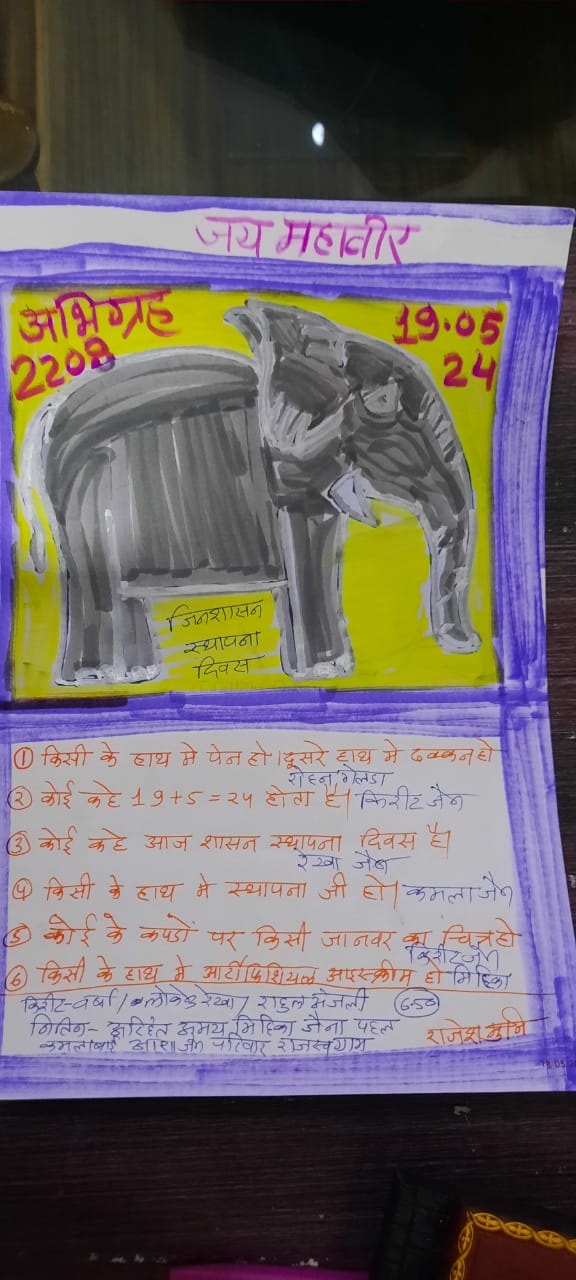 जय महावीर
अभिग्रह
2208
19.05
24
जिनशासन
स्थापना
दिवस
① किसी के हाथ मे पेन हो। दूसरे हाथ मे ढक्कन हो
रोहन गेलडा
② कोई कहे 19+5=24 होता है। किरीट जैन
③ कोई कहे आज शासन स्थापना दिवस है।
रेखा जैन
④ किसी के हाथ मे स्थापना जी हो। कमला जैन
⑤ कोई के कपडों पर किसी जानवर का चित्र हो
किरीट जैन
⑥ किसी के हाथ मे आर्टीफिशियल आइस्क्रीम हो मिहिका
किरीट-वर्षा / रेखा / राहुल सेजली 6-50
मितिन- अरिहंत अभय मिहिका जैना पहल
कमलाबाई आशा जैन परिवार
राजेश मुनि